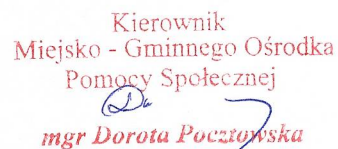 Kierownik
Miejsko - Gminnego Ośrodka
Pomocy Społecznej
mgr Dorota Pocztowska